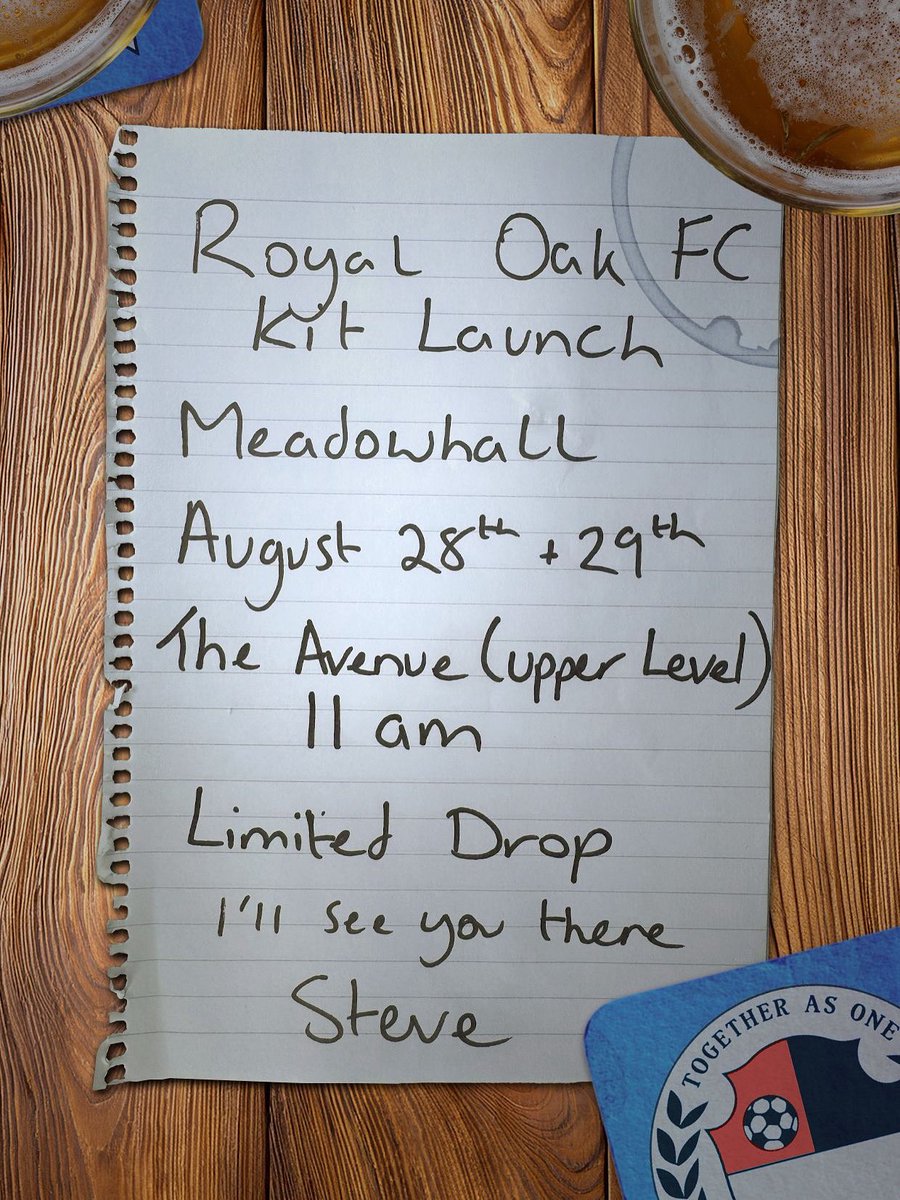 Royal Oak FC
Kit Launch
Meadowhall
August 28th + 29th
The Avenue (upper Level)
11 am
Limited Drop
I'll see you there
Steve
TOGETHER AS ONE